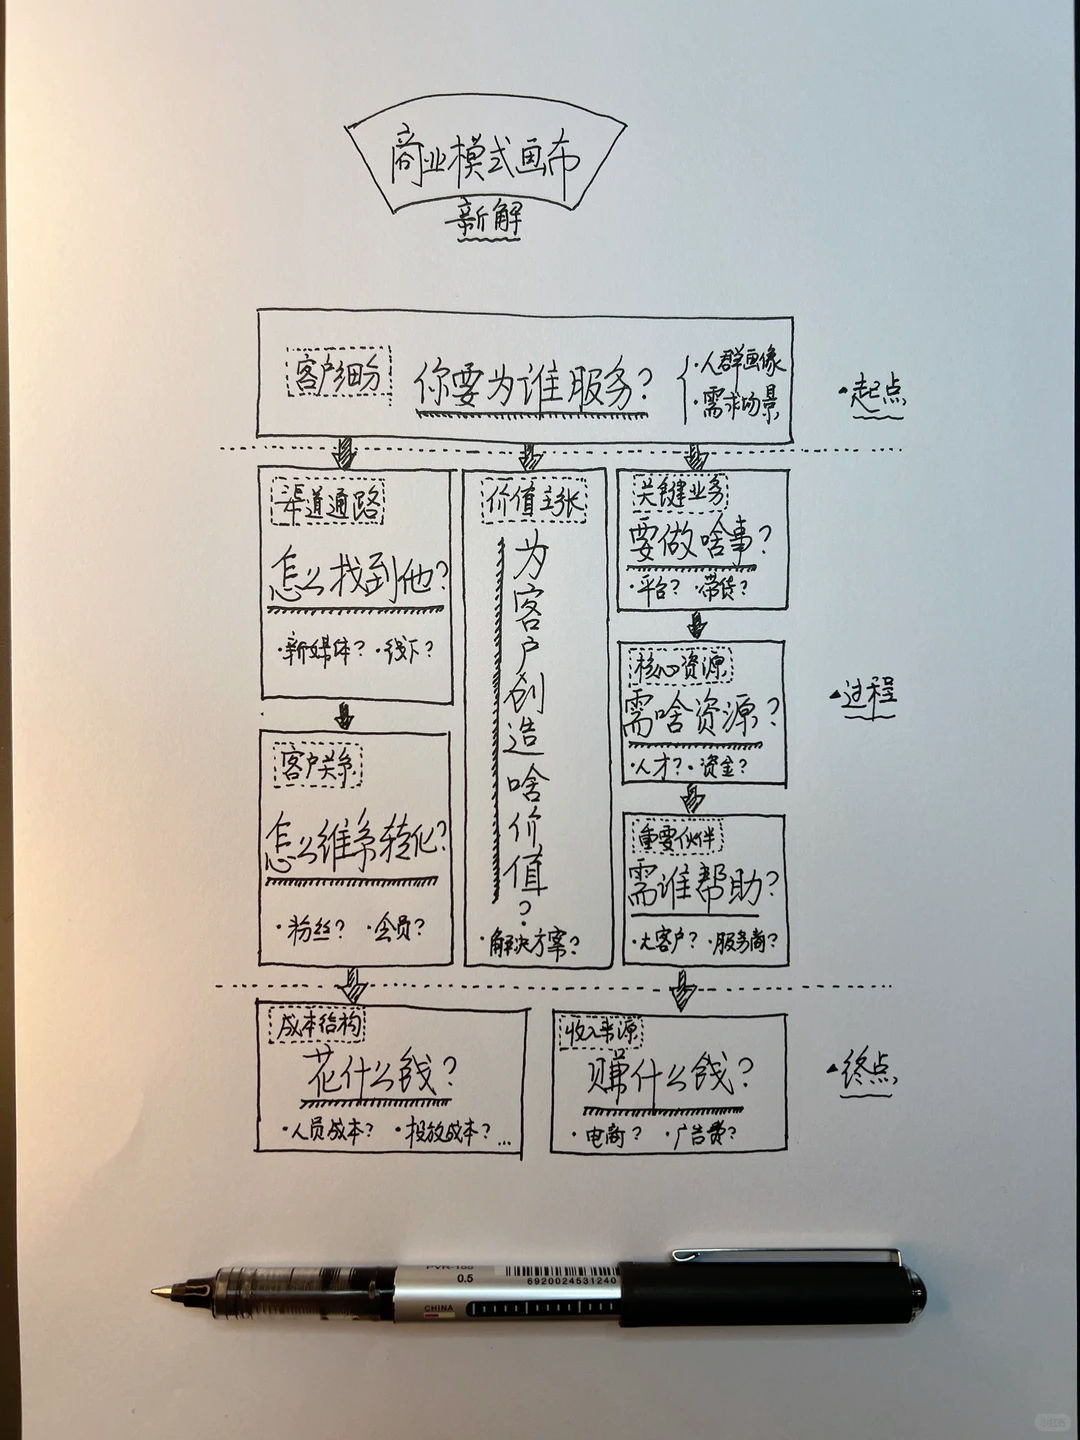 商业模式画布
新解
客户细分
你要为谁服务?
·人群画像
·需求场景
·起点
渠道通路
怎么找到他?
·新媒体? ·线下?
客户关系
怎么维系转化?
·粉丝? ·会员?
价值主张
为客户创造啥价值?
·解决方案?
关键业务
要做啥事?
·平台? ·带货?
核心资源
需啥资源?
·人才? ·资金?
重要伙伴
需谁帮助?
·大客户? ·服务商?
过程
成本结构
花什么钱?
·人员成本? ·投放成本? ...
收入来源
赚什么钱?
·电商? ·广告费?
终点
0.5
CHINA
6920024531240